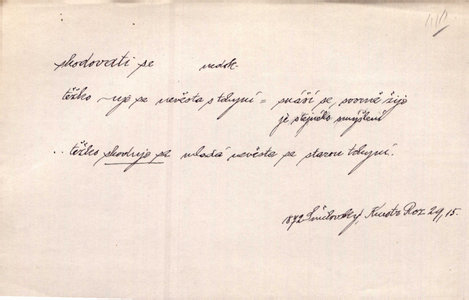 shodovati se nedok.
těžko ~uje se nevěsta s tchyní = snáší se, svorně žije
je stejného smýšlení
.. těžko shoduje se mladá nevěsta se starou tchyní.
872 Kust Roz 29, 15.